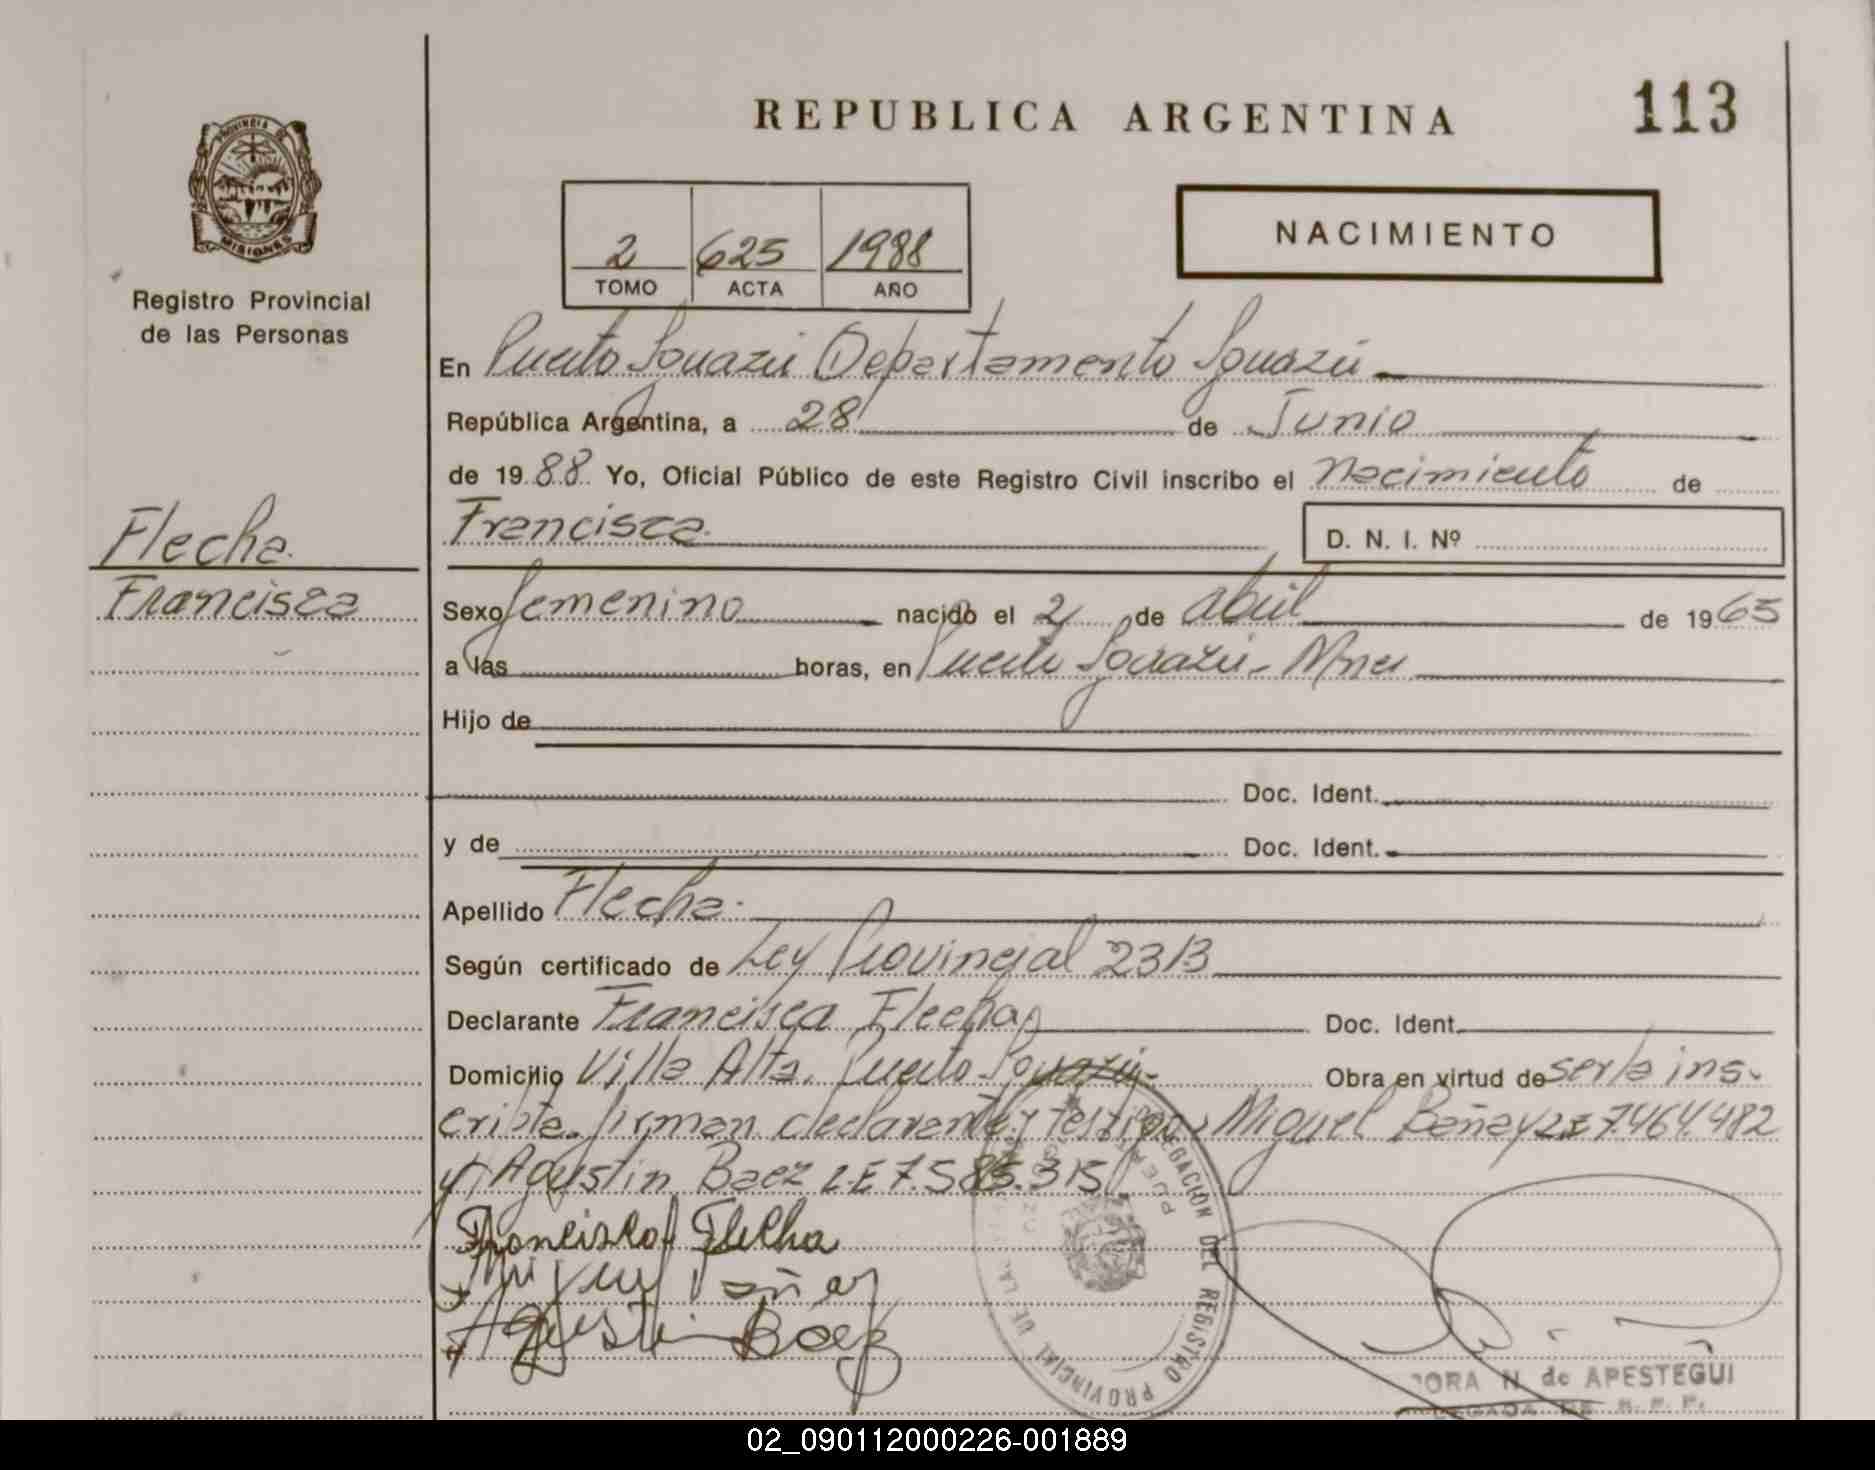 REPUBLICA ARGENTINA
113
PROVINCIA DE
MISIONES
Registro Provincial
de las Personas
2 625 1988
TOMO ACTA AÑO
NACIMIENTO
En Puerto Iguazú Departamento Iguazú
República Argentina, a 28 de Junio
de 1988. Yo, Oficial Público de este Registro Civil inscribo el Nacimiento de
Francisca
D. N. I. Nº
Flecha.
Francisca
Sexo femenino nacido el 2 de abril de 1965
a las horas, en Puerto Iguazú - Mnes
Hijo de
Doc. Ident.
y de Doc. Ident.
Apellido Flecha.
Según certificado de Ley Provincial 2313
Declarante Francisca Flecha Doc. Ident.
Domicilio Villa Alta. Puerto Iguazú. Obra en virtud de serla ins-
cripta. firman declarante y testigos Miguel Bañay LE 7.464.482
y Agustin Baez L.E 7.585.315
Francisca Flecha
Agustin Baez
DELEGACION DEL REGISTRO PROVINCIAL DE LAS
N. de APESTEGUI
02_090112000226-001889